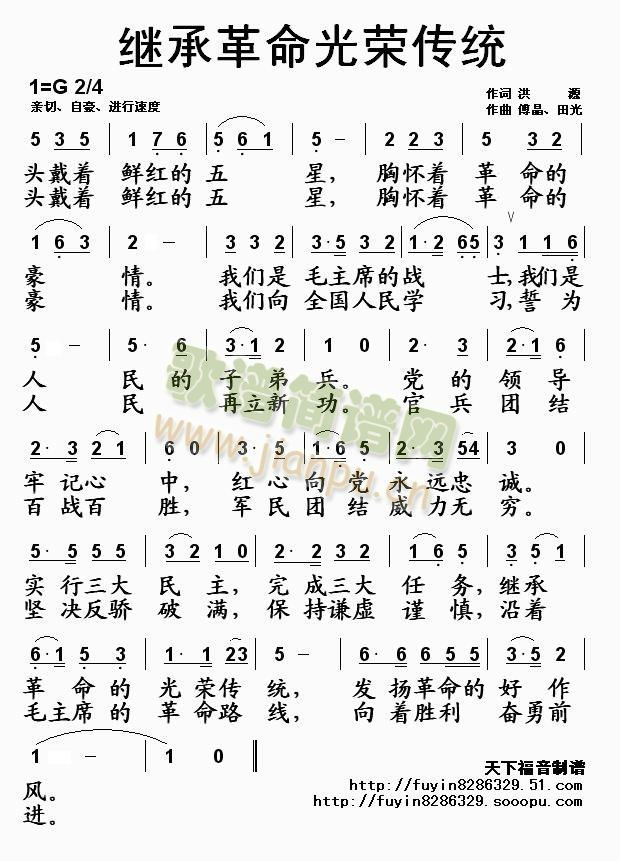 继承革命光荣传统
1=G 2/4
亲切、自豪、进行速度
作词 洪 源
作曲 傅晶、田光
5 3 5 | 1 7 6 | 5 6 1 | 5 - | 2 2 3 | 5 3 2
头戴着 鲜红的 五 星, 胸怀着 革 命的
头戴着 鲜红的 五 星, 胸怀着 革 命的
1 6 3 | 2 - | 3 3 2 | 3·5 3 2 | 1·2 6 5 | 5 3 | 1 1 1 6
豪 情。 我们是 毛主席的战 士,我们是
豪 情。 我们向 全国人民学 习,誓为
5 - | 5· 6 | 3·1 2 | 1 0 | 2· 3 | 2·1 6
人 民 的 子 弟 兵。 党 的 领 导
人 民 再立新 功。 官 兵 团 结
2· 3 2 1 | 6 0 | 3· 5 | 1·6 5 | 2· 3 54 | 3 0
牢 记心 中, 红 心向 党 永 远忠 诚。
百 战百 胜, 军 民团 结 威 力无 穷。
5· 5 3 5 | 3 2 1 0 | 2· 2 3 2 | 1 6 5 | 3 5 1
实 行三大 民 主, 完 成三大 任 务,继承
坚 决反骄 破 满, 保 持谦虚 谨 慎,沿着
6·1 5 3 | 1· 1 23 | 5 - | 6· 6 | 6 6 5 5 | 3·5 2
革 命的 光 荣传 统, 发 扬革命的 好 作
毛主席 的 革 命路 线, 向 着胜利 奋勇前
1 - | 1 0
风。
进。
歌谱简谱网
www.jianpu.cn
天下福音制谱
http://fuyin8286329.51.com/
http://fuyin8286329.sooopu.com/